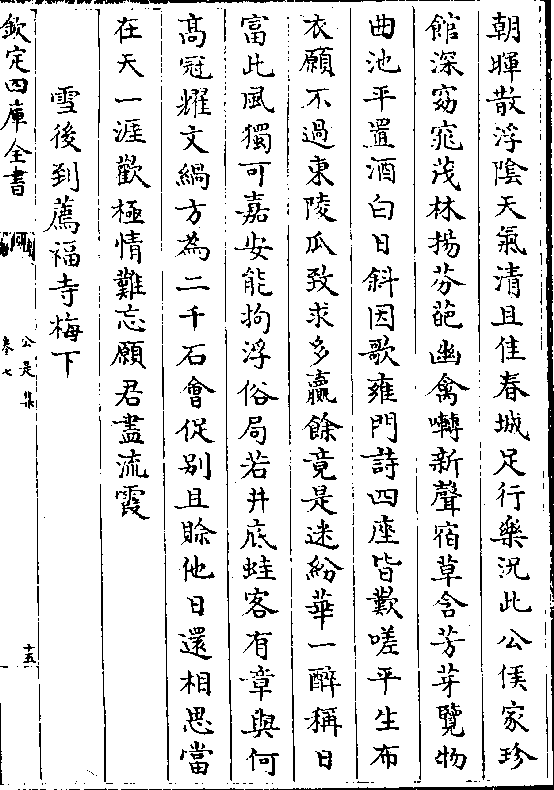 朝暉散浮陰天氣清且佳春城足行樂況此公侯家珍
館深窈窕茂林揚芬葩幽禽囀新聲宿草含芳芽覽物
曲池平置酒白日斜因歌雍門詩四座皆歎嗟平生布
衣願不過東陵瓜致求多贏餘竟是迷紛華一醉稱日
富此風獨可嘉安能拘浮俗局若井底蛙客有章與何
高冠耀文緺方為二千石會促别且賖他日還相思當
在天一涯歡極情難忘願君盡流霞
雪後到薦福寺梅下
欽定四庫全書
公是集
卷七
十五